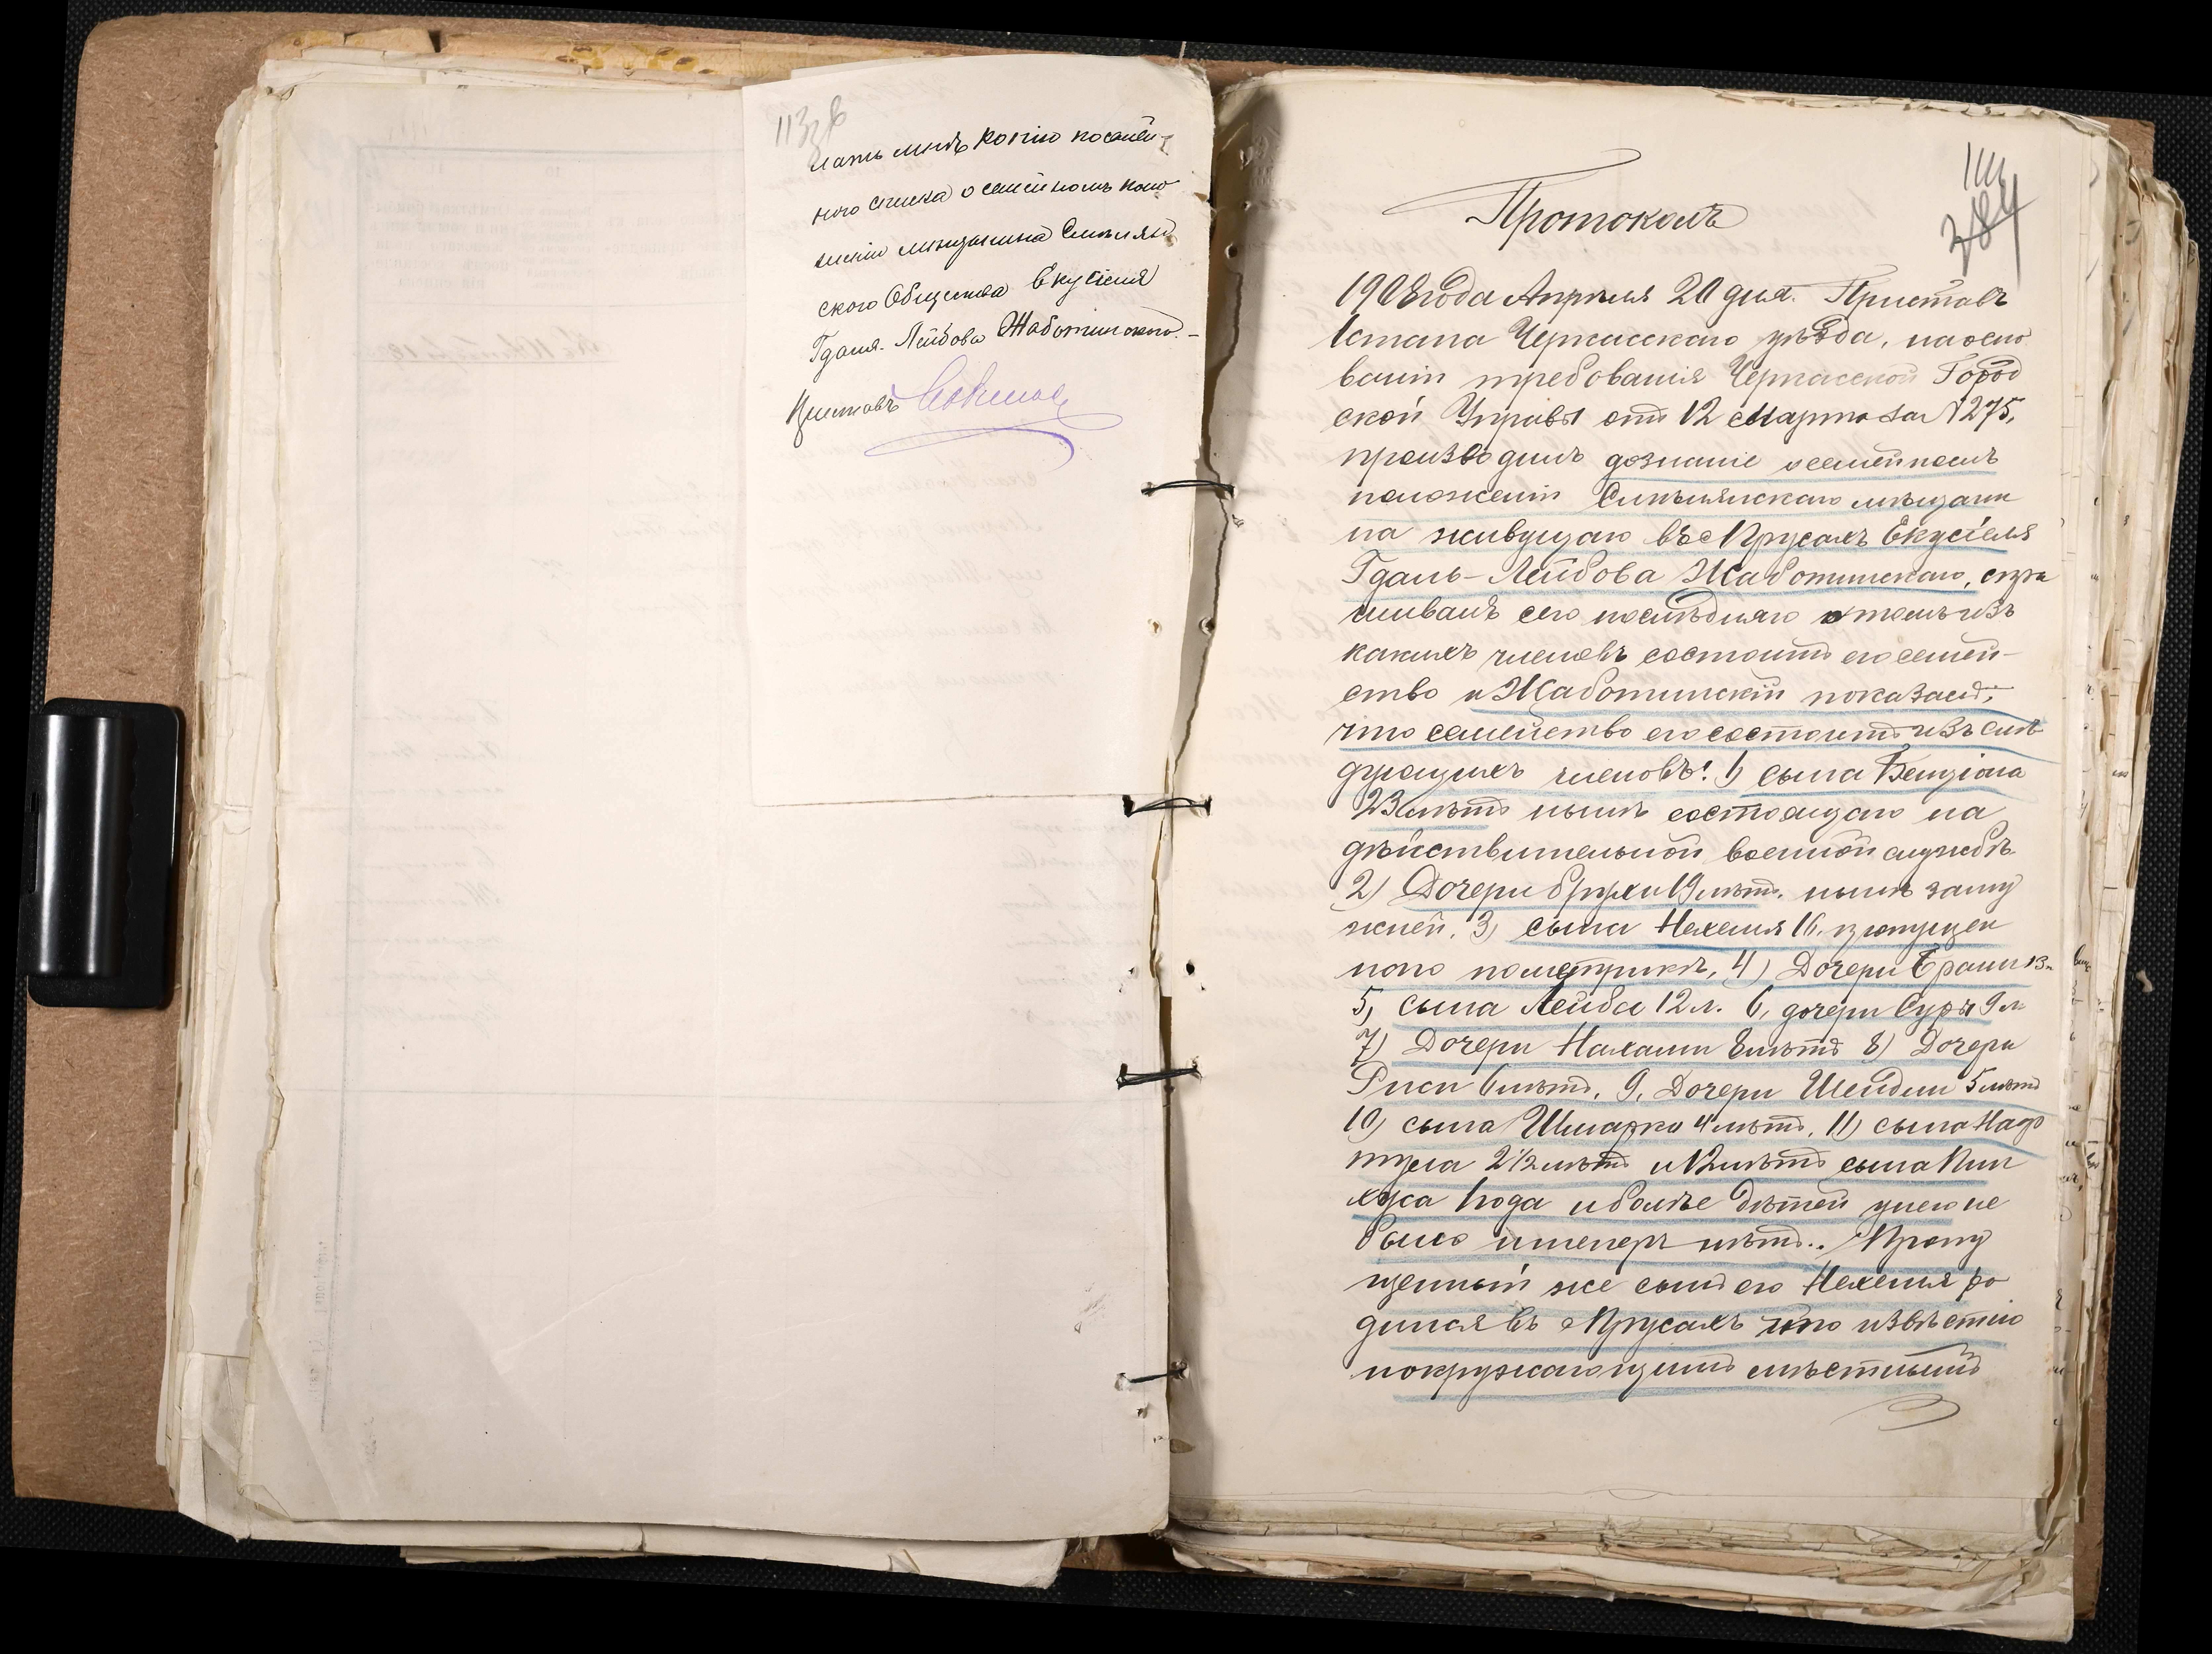 113
лать мнѣ копію посемей-
наго списка о семейномъ поло
женіи мѣщанина Смѣлян
скаго Общества Екусіеля
Гдаля-Лейбова Жаботинскаго.-
Приставъ
Протоколъ
114
384
1908 года Апрѣля 20 дня. Приставъ
1 стана Черкасскаго уѣзда, на осно
ваніи требованія Черкасской Город
ской Управы отъ 12 Марта за № 275,
производилъ дознаніе о семейномъ
положеніи Смѣлянскаго мѣщани
на живущаго въ с Прусахъ Екусіеля
Гдаль-Лейбова Жаботинскаго, спра
шивалъ сего послѣдняго о томъ изъ
какихъ членовъ состоитъ его семей-
ство и Жаботинскій показалъ;
что семейство его состоитъ изъ слѣ
дующихъ членовъ: 1) сына Бенціона
23 лѣтъ нынѣ состоящаго на
дѣйствительной военной службѣ
2) Дочери Брухи 19 лѣтъ. нынѣ заму
жней, 3) сына Нехемія 16, пропущен
наго по метрикѣ, 4) Дочери 13 л
5, сына Лейба 12 л. 6, дочери Суры 9 л
7) Дочери Нахами 8 лѣтъ 8) Дочери
Риси 6 лѣтъ, 9, Дочери Шейдли 5 лѣтъ
10) сына Шмарко 4 лѣтъ, 11) сына Наф
тула 2 1/2 лѣтъ и 12 лѣтъ сына Пин
хуса 1 года и болѣе дѣтей у него не
было и теперь нѣтъ.. Пропу
щенный же сынъ его Нехемія ро
дился въ с Прусахъ что извѣстно
и окружающимъ мѣстнымъ